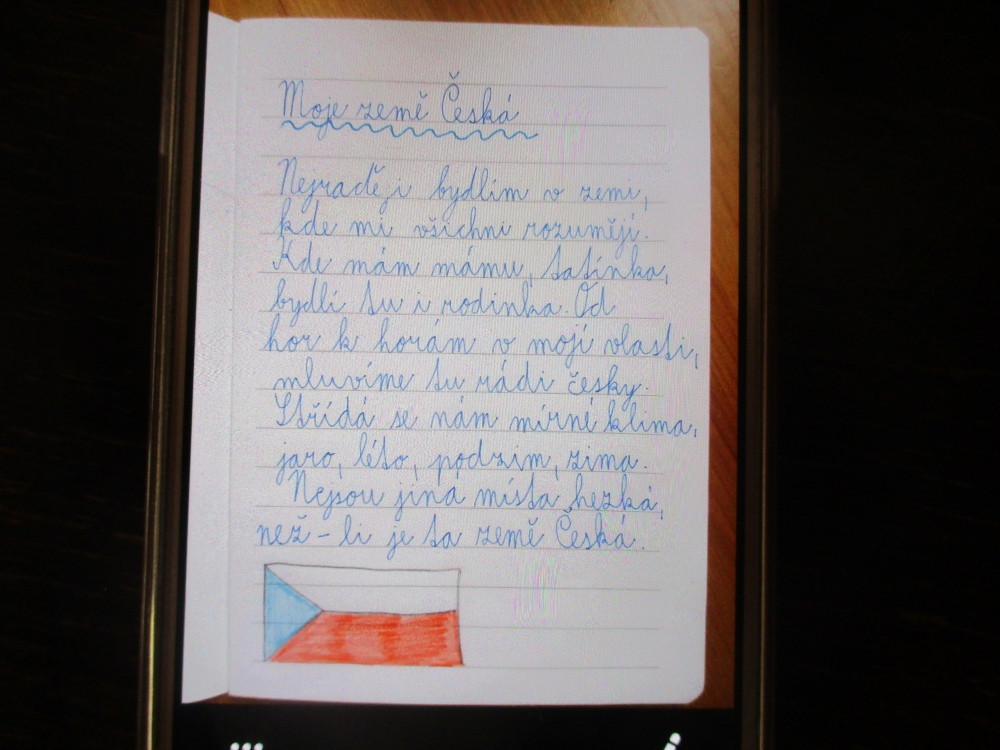 Moje země Česká
Nejraději bydlím v zemi,
kde mi všichni rozumějí.
Kde mám mámu, tatínka,
bydlí tu i rodinka. Od
hor k horám v mojí vlasti,
mluvíme tu rádi česky.
Střídá se nám mírné klima,
jaro, léto, podzim, zima.
Nejsou jiná místa hezká,
než-li je ta země Česká.